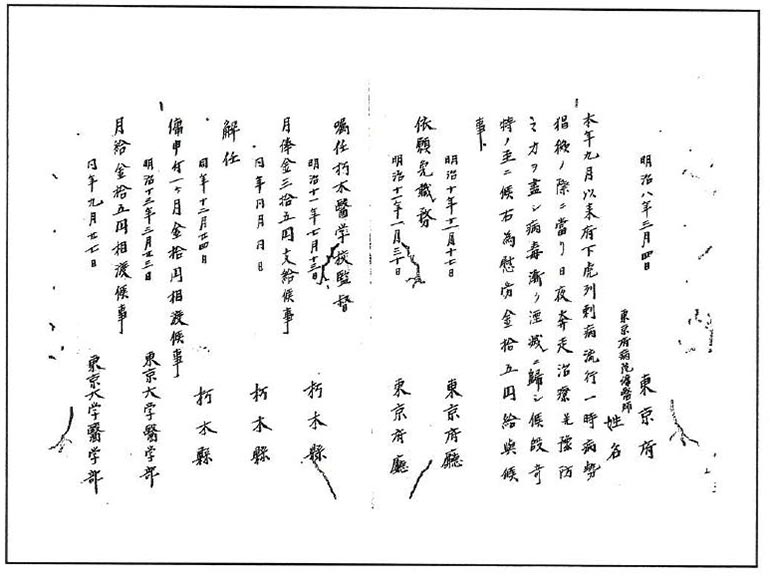 明治八年三月四日
東京府
東京府病院傭醫師
姓名
本年九月以来府下虎列剌病流行一時病勢
猖獗ノ際ニ當リ日夜奔走治療並豫防
ニ力ヲ盡シ病毒漸ク湮滅ニ歸シ候段奇
特ノ至ニ候右為慰労金拾五円給與候
事
明治十年十二月十七日
東京府廳
依願免職務
明治十二年一月三十日
東京府廳
嘱任栃木醫学校監督
明治十一年七月十三日
栃木縣
月俸金三拾五円支給候事
同年同月同日
栃木縣
解任
同年十二月廿四日
栃木縣
傭申付一ヶ月金拾円相渡候事
明治十三年三月廿三日
東京大学醫学部
月給金拾五円相渡候事
同年九月廿七日
東京大学醫学部